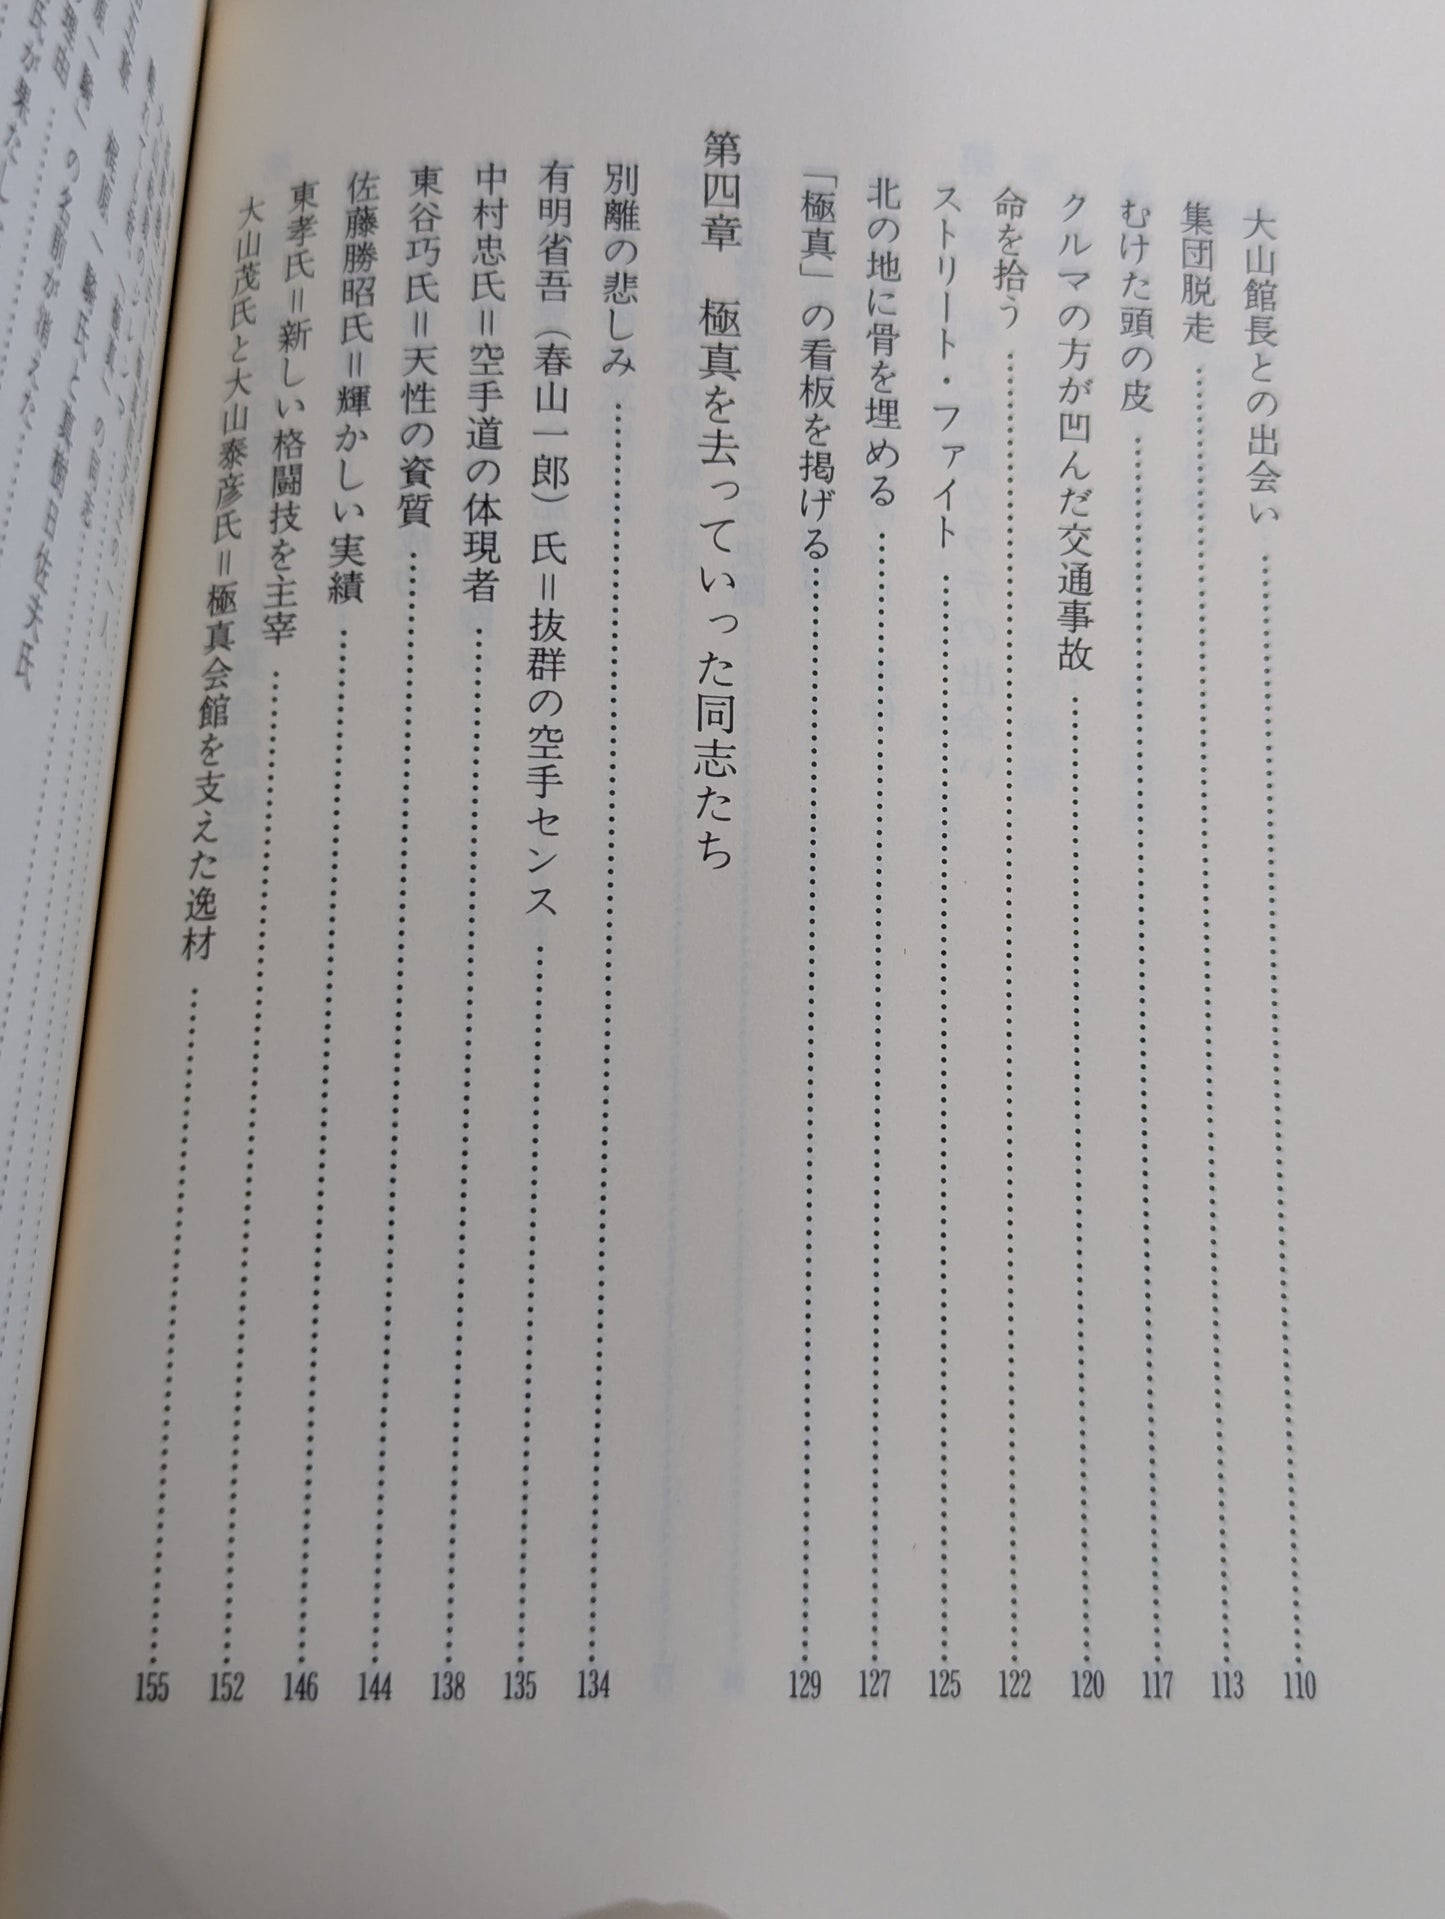 大山館長との出会い……110
集団脱走……113
むけた頭の皮……117
クルマの方が凹んだ交通事故……120
命を拾う……122
ストリート・ファイト……125
北の地に骨を埋める……127
「極真」の看板を掲げる……129
第四章　極真を去っていった同志たち
別離の悲しみ……134
有明省吾（春山一郎）氏＝抜群の空手センス……135
中村忠氏＝空手道の体現者……138
東谷巧氏＝天性の資質……144
佐藤勝昭氏＝輝かしい実績……146
東孝氏＝新しい格闘技を主宰……152
大山茂氏と大山泰彦氏＝極真会館を支えた逸材……155